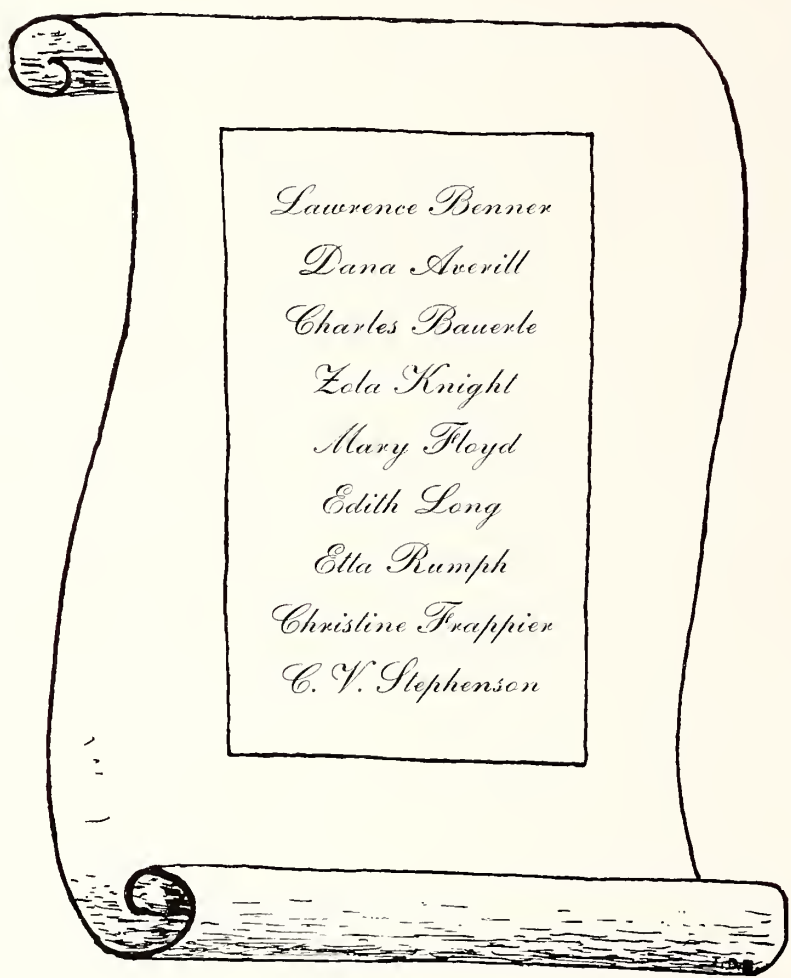 Lawrence Benner
Dana Averill
Charles Bauerle
Zola Knight
Mary Floyd
Edith Long
Etta Rumph
Christine Frappier
C. V. Stephenson